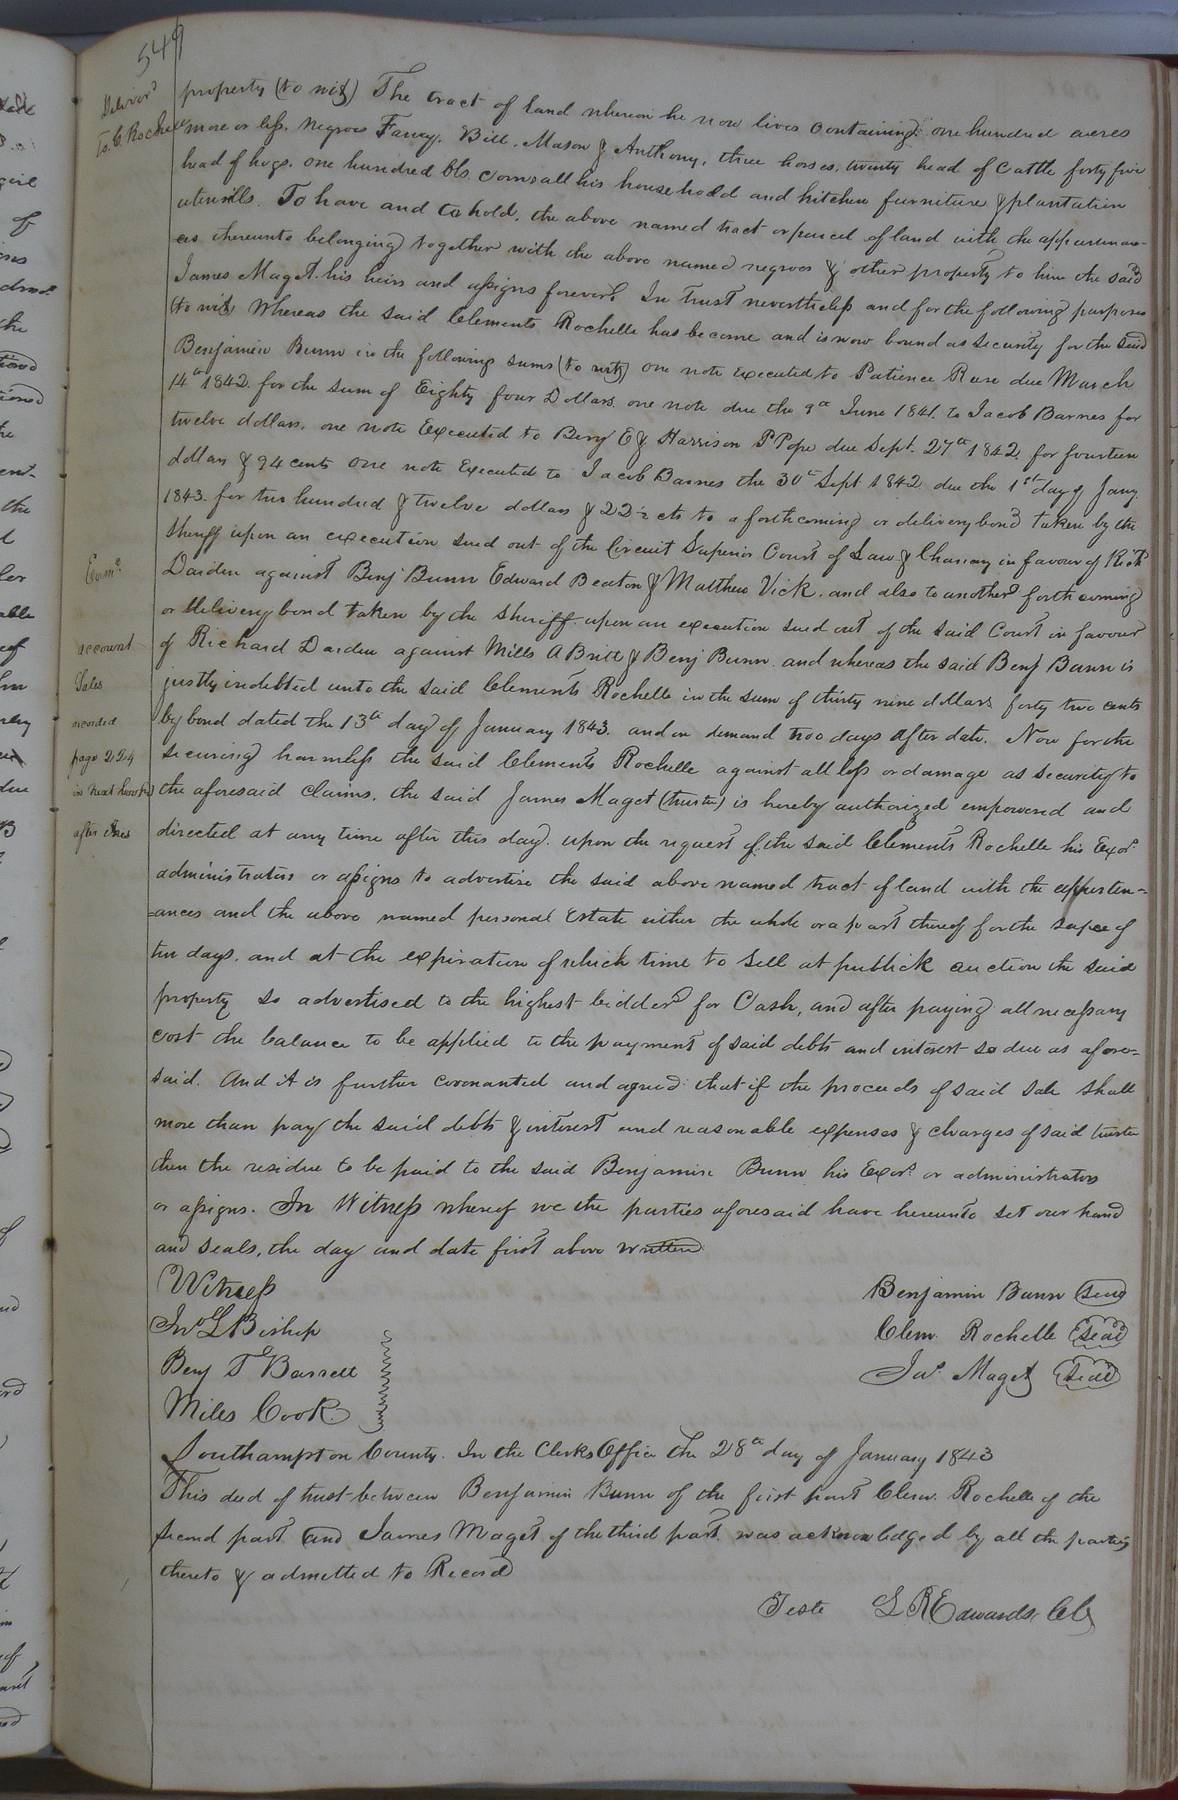 549
Deliverd
to C. Rochelle
property (to wit) The tract of land whereon he now lives containing one hundred acres
more or less. Negroes Fanny, Bill, Mason & Anthony, three horses, twenty head of Cattle forty five
head of hogs. one hundred bls. corn all his household and kitchen furniture & plantation
utensills. To have and to hold, the above named tract or parcel of land with the appurtenan-
ces thereunto belonging together with the above named negroes & other property to him the said
James Maget his heirs and assigns forever. In trust nevertheless and for the following purposes
(to wit) Whereas the said Clements Rochelle has become and is now bound as security for the said
Benjamin Bunn in the following sums (to wit) one note executed to Patience Reese due March
14th 1842. for the sum of Eighty four Dollars. one note due the 9th June 1841. to Jacob Barnes for
twelve dollars. one note Executed to Benj E & Harrison P Pope due Sept. 27th 1842. for fourteen
dollars & 94 cents one note Executed to Jacob Barnes the 30th Sept 1842 due the 1st day of Jany
1843. for two hundred & twelve dollars & 22½ cts to a forthcoming or delivery bond taken by the
Sheriff upon an execution sued out of the Circuit Superior Court of Law & Chancery in favour of Richd
Darden against Benj Bunn Edward Beaton & Matthew Vick. and also to another forthcoming
or delivery bond taken by the Sheriff upon an execution sued out of the said Court in favour
of Richard Darden against Mills A Britt & Benj Bunn. and whereas the said Benj Bunn is
justly indebted unto the said Clements Rochelle in the sum of thirty nine dollars forty two cents
by bond dated the 13th day of January 1843. and on demand two days after date. Now for the
securing harmless the said Clements Rochelle against all loss or damage as security to
the aforesaid claims. the said James Maget (trustee) is hereby authorized empowered and
directed at any time after this day. upon the request of the said Clements Rochelle his Exor.
administrators or assigns to advertise the said above named tract of land with the appurten=
=ances and the above named personal Estate either the whole or a part thereof for the sapce of
ten days. and at the expiration of which time to sell at publick auction the said
property so advertised to the highest bidder for Cash, and after paying all necessary
cost the balance to be applied to the payment of said debts and interest so due as afore=
said. And it is further covenanted and agreed that if the proceeds of said sale shall
more than pay the said debts & interest and reasonable expenses & charges of said trustee
then the residue to be paid to the said Benjamin Bunn his Exors. or administrators
or assigns. In Witness whereof we the parties aforesaid have hereunto set our hand
and seals, the day and date first above written
Examd.
account
Sales
recorded
page 224
in next book
after this
Witness
Jno L Bishop
Benj T Barrett
Miles Cook
Benjamin Bunn Seal
Clem. Rochelle Seal
Jas. Maget Seal
Southampton County. In the Clerks Office the 28th day of January 1843
This deed of trust between Benjamin Bunn of the first part Clem. Rochelle of the
second part and James Maget of the third part. was acknowledged by all the parties
thereto & admitted to Record
Teste L R Edwards, Clk